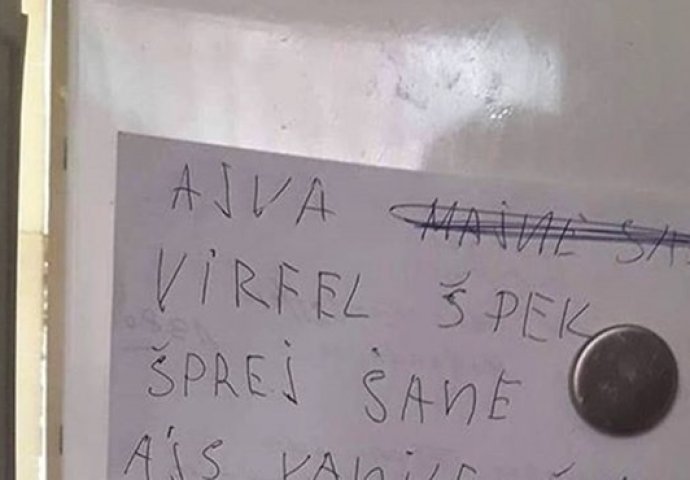 AJVA MAJNE SA
VIRFEL ŠPEK
ŠPREJ ŠANE
AJS VANILE